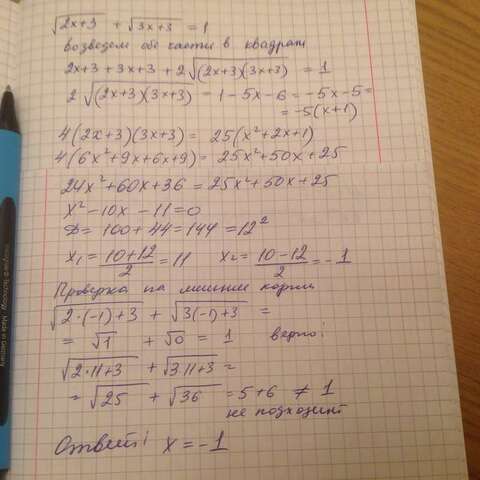 √(2x+3) + √(3x+3) = 1
возведем обе части в квадрат
2x+3 + 3x+3 + 2√((2x+3)(3x+3)) = 1
2√((2x+3)(3x+3)) = 1-5x-6 = -5x-5 =
= -5(x+1)
4(2x+3)(3x+3) = 25(x²+2x+1)
4(6x²+9x+6x+9) = 25x²+50x+25
24x²+60x+36 = 25x²+50x+25
x²-10x-11=0
D = 100+44=144 = 12²
x₁ = (10+12)/2 = 11 x₂ = (10-12)/2 = -1
Проверка на лишние корни
√(2·(-1)+3) + √(3(-1)+3) =
= √1 + √0 = 1 верно!
√(2·11+3) + √(3·11+3) =
= √25 + √36 = 5+6 ≠ 1
не подходит
Ответ: x = -1
Made in Germany